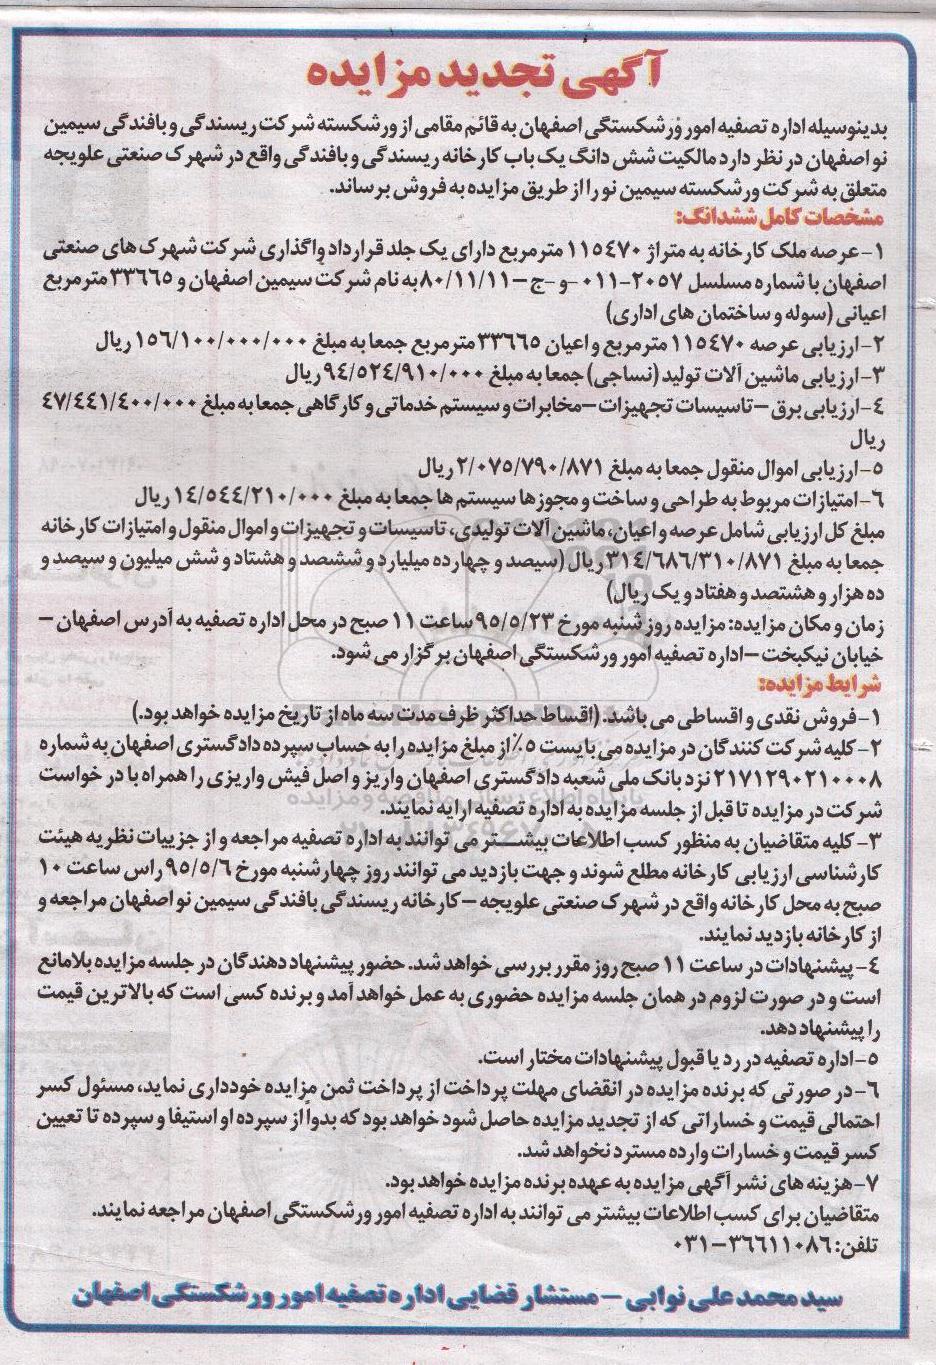 آگهی تجدید مزایده
بدینوسیله اداره تصفیه امور ورشکستگی اصفهان به قائم مقامی از ورشکسته شرکت ریسندگی و بافندگی سیمین
نو اصفهان در نظر دارد مالکیت شش دانگ یک باب کارخانه ریسندگی و بافندگی واقع در شهرک صنعتی علویجه
متعلق به شرکت ورشکسته سیمین نو را از طریق مزایده به فروش برساند.
مشخصات کامل ششدانگ:
۱-عرصه ملک کارخانه به متراژ ۱۱۵۴۷۰ مترمربع دارای یک جلد قرارداد واگذاری شرکت شهرک های صنعتی
اصفهان با شماره مسلسل ۲۰۵۷-۰۱۱ -و-ج-۸۰/۱۱/۱۱ به نام شرکت سیمین اصفهان و ۳۳۶۶۵ مترمربع
اعیانی (سوله و ساختمان های اداری)
۲-ارزیابی عرصه ۱۱۵۴۷۰ مترمربع و اعیان ۳۳۶۶۵ مترمربع جمعا به مبلغ ۱۵۶/۱۰۰/۰۰۰/۰۰۰ ریال
۳-ارزیابی ماشین آلات تولید (نساجی) جمعا به مبلغ ۹۴/۵۲۴/۹۱۰/۰۰۰ ریال
۴-ارزیابی برق -تاسیسات تجهیزات -مخابرات و سیستم خدماتی و کارگاهی جمعا به مبلغ ۴۷/۴۴۱/۴۰۰/۰۰۰
ریال
۵-ارزیابی اموال منقول جمعا به مبلغ ۲/۰۷۵/۷۹۰/۸۷۱ ریال
۶-امتیازات مربوط به طراحی و ساخت و مجوزها سیستم ها جمعا به مبلغ ۱۴/۵۴۴/۲۱۰/۰۰۰ ریال
مبلغ کل ارزیابی شامل عرصه و اعیان، ماشین آلات تولیدی، تاسیسات و تجهیزات و اموال منقول و امتیازات کارخانه
جمعا به مبلغ ۳۱۴/۶۸۶/۳۱۰/۸۷۱ ریال (سیصد و چهارده میلیارد و ششصد و هشتاد و شش میلیون و سیصد و
ده هزار و هشتصد و هفتاد و یک ریال)
زمان و مکان مزایده: مزایده روز شنبه مورخ ۹۵/۵/۲۳ ساعت ۱۱ صبح در محل اداره تصفیه به آدرس اصفهان -
خیابان نیکبخت -اداره تصفیه امور ورشکستگی اصفهان برگزار می شود.
شرایط مزایده:
۱-فروش نقدی و اقساطی می باشد. (اقساط حداکثر ظرف مدت سه ماه از تاریخ مزایده خواهد بود.)
۲-کلیه شرکت کنندگان در مزایده می بایست ۵٪ از مبلغ مزایده را به حساب سپرده دادگستری اصفهان به شماره
۲۱۷۱۲۹۰۲۱۰۰۰۸ نزد بانک ملی شعبه دادگستری اصفهان واریز و اصل فیش واریزی را همراه با درخواست
شرکت در مزایده تا قبل از جلسه مزایده به اداره تصفیه ارایه نمایند.
۳-کلیه متقاضیان به منظور کسب اطلاعات بیشتر می توانند به اداره تصفیه مراجعه و از جزییات نظریه هیئت
کارشناسی ارزیابی کارخانه مطلع شوند و جهت بازدید می توانند روز چهارشنبه مورخ ۹۵/۵/۶ راس ساعت ۱۰
صبح به محل کارخانه واقع در شهرک صنعتی علویجه -کارخانه ریسندگی بافندگی سیمین نو اصفهان مراجعه و
از کارخانه بازدید نمایند.
۴-پیشنهادات در ساعت ۱۱ صبح روز مقرر بررسی خواهد شد. حضور پیشنهاد دهندگان در جلسه مزایده بلامانع
است و در صورت لزوم در همان جلسه مزایده حضوری به عمل خواهد آمد و برنده کسی است که بالاترین قیمت
را پیشنهاد دهد.
۵-اداره تصفیه در رد یا قبول پیشنهادات مختار است.
۶-در صورتی که برنده مزایده در انقضای مهلت پرداخت از پرداخت ثمن مزایده خودداری نماید، مسئول کسر
احتمالی قیمت و خساراتی که از تجدید مزایده حاصل شود خواهد بود که بدوا از سپرده او استیفا و سپرده تا تعیین
کسر قیمت و خسارات وارده مسترد نخواهد شد.
۷-هزینه های نشر آگهی مزایده به عهده برنده مزایده خواهد بود.
متقاضیان برای کسب اطلاعات بیشتر می توانند به اداره تصفیه امور ورشکستگی اصفهان مراجعه نمایند.
تلفن: ۳۶۶۱۱۰۸۶-۰۳۱
سید محمد علی نوابی - مستشار قضایی اداره تصفیه امور ورشکستگی اصفهان